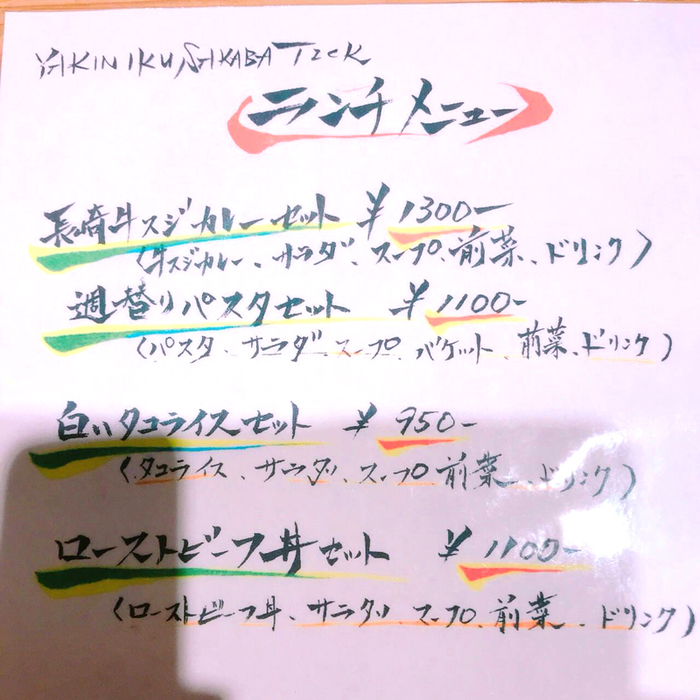 YAKINIKU SAKABA TZCK
ランチメニュー
長崎牛スジカレーセット ¥1300-
(牛スジカレー、サラダ、スープ、前菜、ドリンク)
週替りパスタセット ¥1100-
(パスタ、サラダ、スープ、バケット、前菜、ドリンク)
白いタコライスセット ¥950-
(タコライス、サラダ、スープ、前菜、ドリンク)
ローストビーフ丼セット ¥1100-
(ローストビーフ丼、サラダ、スープ、前菜、ドリンク)